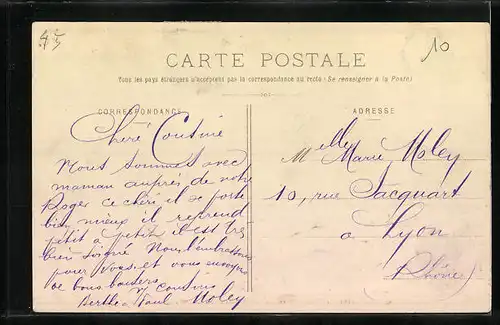 45
10
CARTE POSTALE
Tous les pays étrangers n'acceptent pas la correspondance au recto (Se renseigner à la Poste)
CORRESPONDANCE
Chéré Coutiné
Nous sommes avec
maman auprès de notre
Roger ce chéri il se porte
bien mieux il reprend
pétit à petit il est très
bien soigné Nous l'embrassons
pour Vous et vous envoyons
de bons baisers
Vº cousins
Berthe Paul Moley
ADRESSE
Melle Marie Moley
10, rue Jacquart
a Lyon
(Rhône)